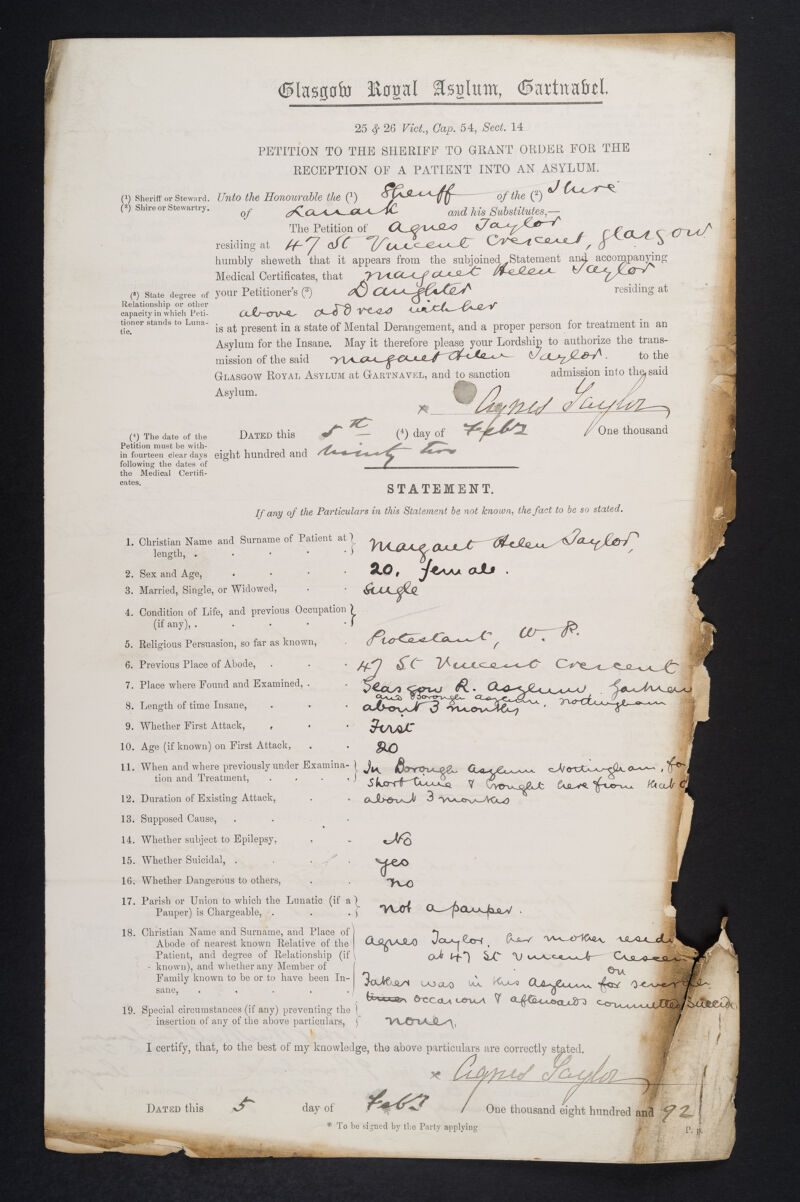 Glasgow Royal Asylum, Gartnabel.
25 & 26 Vict., Cap. 54, Sect. 14
PETITION TO THE SHERIFF TO GRANT ORDER FOR THE
RECEPTION OF A PATIENT INTO AN ASYLUM.
(1) Sheriff or Steward.
(2) Shire or Stewartry.
Unto the Honourable the (1) Sheriff of the (2) Shire
of Lanark and his Substitutes,—
The Petition of Agnes Taylor
residing at 47 St Vincent Crescent, Glasgow
humbly sheweth that it appears from the subjoined Statement and accompanying
Medical Certificates, that Margaret Helen Taylor
(3) State degree of Relationship or other capacity in which Petitioner stands to Lunatic.
your Petitioner's (3) Daughter residing at
above address with her
is at present in a state of Mental Derangement, and a proper person for treatment in an
Asylum for the Insane. May it therefore please your Lordship to authorize the trans-
mission of the said Margaret Helen Taylor. to the
GLASGOW ROYAL ASYLUM at GARTNAVEL, and to sanction admission into the said
Asylum.
x Agnes Taylor
(4) The date of the Petition must be within fourteen clear days following the dates of the Medical Certificates.
DATED this 5th (4) day of Feby One thousand
eight hundred and ninety two
STATEMENT.
If any of the Particulars in this Statement be not known, the fact to be so stated.
1. Christian Name and Surname of Patient at length, . Margaret Helen Taylor,
2. Sex and Age, 20, female.
3. Married, Single, or Widowed, Single
4. Condition of Life, and previous Occupation (if any), .
5. Religious Persuasion, so far as known, Protestant, W. P.
6. Previous Place of Abode, 47 St Vincent Crescent
7. Place where Found and Examined, . Glasgow R. Asylum,
and Borough Asylum, Nottingham
8. Length of time Insane, about 3 months
9. Whether First Attack, First
10. Age (if known) on First Attack, 20
11. When and where previously under Examination and Treatment, In Borough Asylum Nottingham, for
short time & brought here from that
12. Duration of Existing Attack, about 3 months
13. Supposed Cause,
14. Whether subject to Epilepsy, No
15. Whether Suicidal, . yes
16. Whether Dangerous to others, no
17. Parish or Union to which the Lunatic (if a Pauper) is Chargeable, . not a pauper.
18. Christian Name and Surname, and Place of Abode of nearest known Relative of the Patient, and degree of Relationship (if known), and whether any Member of Family known to be or to have been Insane,
Agnes Taylor, her mother
at 47 St Vincent Crescent
Father was in this Asylum on
occasions & afterwards committed suicide.
19. Special circumstances (if any) preventing the insertion of any of the above particulars, none.
I certify, that, to the best of my knowledge, the above particulars are correctly stated.
x Agnes Taylor
DATED this 5 day of Feby One thousand eight hundred and 92
* To be signed by the Party applying